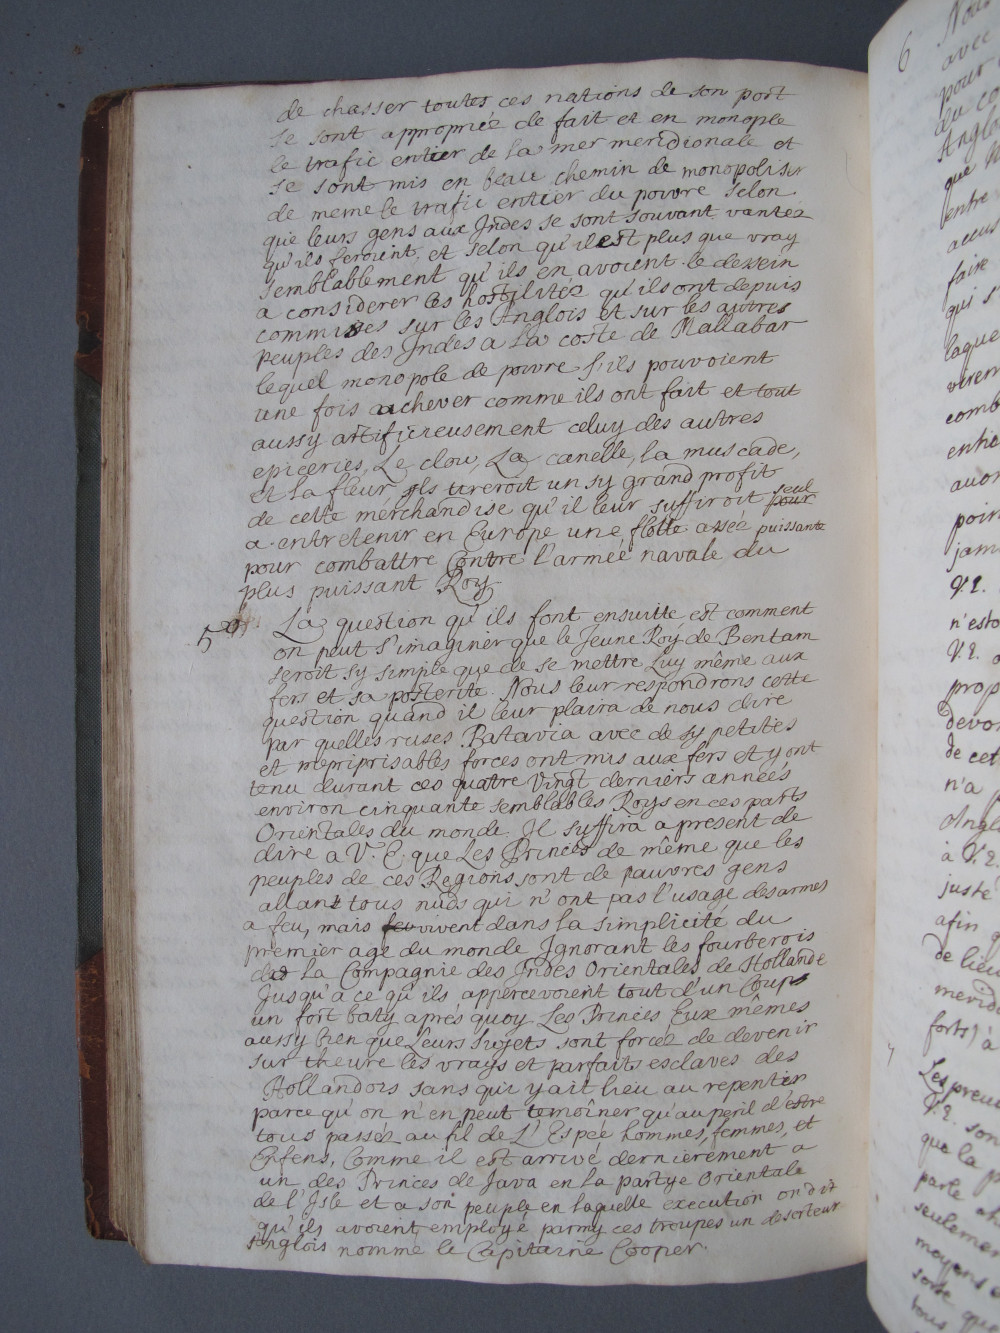 de chasser toutes ces nations de son port
se sont appropriéz de fait et en monople
le trafic entier de la mer meridionale et
se sont mis en beau chemin de monopoliser
de meme le trafic entier du poivre selon
que leurs gens aux Indes se sont souvant vantéz
qu'ils feroient, et selon qu'il est plus que vray
semblablement qu'ils en avoient le dessein
a considerer les hostilitéz qu'ils ont depuis
commises sur les Anglois et sur les autres
peuples des Indes a la coste de Mallabar
lequel monopole de poivre s'ils pouvoient
une fois achever comme ils ont fait et tout
aussy artificieusement celuy des autres
epiceries, Le clou, La canelle, la muscade,
et la fleur, ils tireroit un sy grand profit
de cette merchandise qu'il leur suffiroit seul
a entretenir en Europe une flotte asséz puissante
pour combattre Contre l'armée navale du
plus puissant Roy
5º. La question qu'ils font ensuite est comment
on peut s'imaginer que le Jeune Roy de Bentam
seroit sy simple que de se mettre Luy même aux
fers et sa posterité. Nous leur respondrons cette
question quand il leur plaira de nous dire
par quelles ruses Batavia avec de sy petites
et mepriprisables forces ont mis aux fers et y ont
tenu durant ces quattre Vingt derniers années
environ cinquante semblables Roys en ces parts
Orientales du monde. Il suffira a present de
dire a V. E. que Les Princes de même que les
peuples de ces Regions sont de pauvres gens
allant tous nuds qui n'ont pas l'usage des armes
a feu, mais vivent dans la simplicité du
premier age du monde Ignorant les fourberois
de la Compagnie des Indes Orientales de Hollande
Jusqu'a ce qu'ils appercevoient tout d'un Coup
un fort baty aprés quoy Les Princes Eux mêmes
aussy bien que Leurs Sujets sont forcéz de devenir
sur theure les vrays et parfaits esclaves des
Hollandois sans qui y ait lieu au repentir
parce qu'on n'en peut temoîner qu'au peril d'estre
tous passéz au fil de L'Espeé hommes, femmes, et
Enfens, Comme il est arrivé dernierement a
un des Princes de Java en la partye Orientale
de l'Isle et a son peuple en laquelle execution on dit
qu'ils avoient employé parmy ces troupes un deserteur
Anglois nommé le Capitaine Cooper.
6 Nous
avec
pour
du
Anglo
que
entre
accus
faire
qui s'
laque
virem
comb
entie
avon
poin
jam
V. E.
n'esto
V. E.
prop
devo
de cet
n'a
Angl
à V. E
juste
afin
de lieu
merid
forts) à
Les preu
V. E. son
que la
parle
seulemen
moyens
sorte que
tous